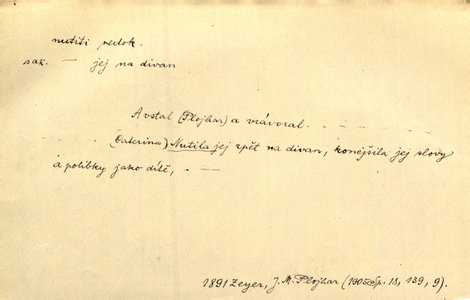 nutiti nedok.
zák. — jej na divan
A vstal (Plojhar) a vrávoral. . — — —
(Caterina) Nutila jej zpět na divan, konejšila jej slovy
a polibky jako dítě, . —
1891 Zeyer, J. M. Plojhar (1905 Sp. 13, 139, 9).